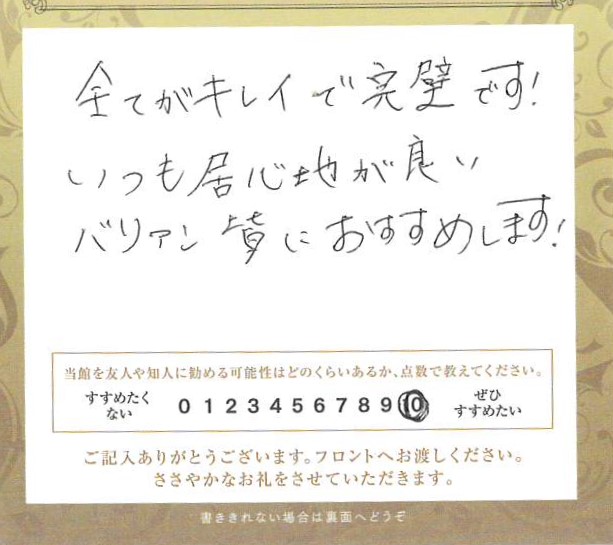 全てがキレイで完璧です!
いつも居心地が良い
バリアン皆におすすめします!
当館を友人や知人に勧める可能性はどのくらいあるか、点数で教えてください。
すすめたくない 0 1 2 3 4 5 6 7 8 9 10 ぜひすすめたい
ご記入ありがとうございます。フロントへお渡しください。
ささやかなお礼をさせていただきます。
書ききれない場合は裏面へどうぞ